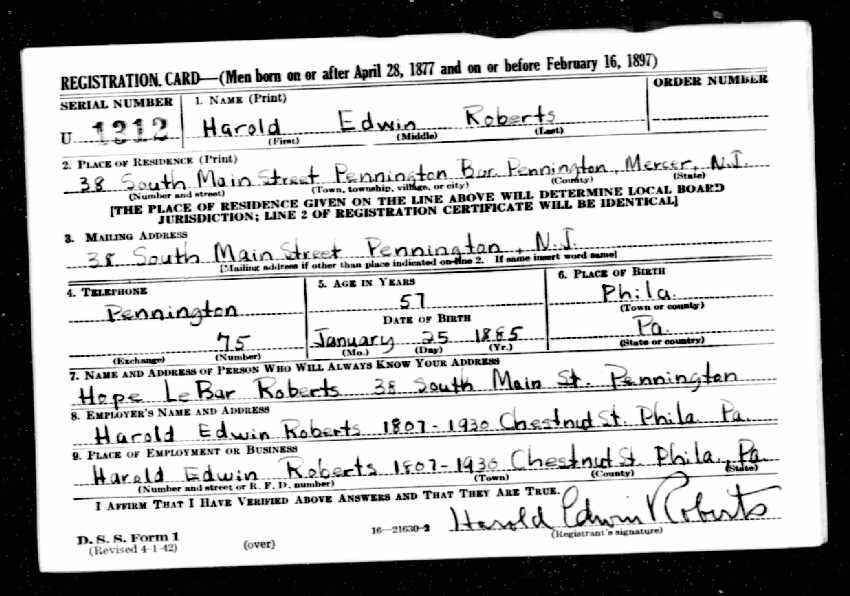 REGISTRATION CARD—(Men born on or after April 28, 1877 and on or before February 16, 1897)
SERIAL NUMBER 1. NAME (Print) ORDER NUMBER
U 1312 Harold Edwin Roberts
(First) (Middle) (Last)
2. PLACE OF RESIDENCE (Print)
38 South Main Street Pennington Bor. Pennington, Mercer, N.J.
(Number and street) (Town, township, village, or city) (County) (State)
[THE PLACE OF RESIDENCE GIVEN ON THE LINE ABOVE WILL DETERMINE LOCAL BOARD
JURISDICTION; LINE 2 OF REGISTRATION CERTIFICATE WILL BE IDENTICAL]
3. MAILING ADDRESS
38 South Main Street Pennington, N.J.
[Mailing address if other than place indicated on line 2. If same insert word same]
4. TELEPHONE 5. AGE IN YEARS 6. PLACE OF BIRTH
Pennington 57 Phila.
(Town or county)
DATE OF BIRTH
75 January 25 1885 Pa.
(Exchange) (Number) (Mo.) (Day) (Yr.) (State or country)
7. NAME AND ADDRESS OF PERSON WHO WILL ALWAYS KNOW YOUR ADDRESS
Hope LeBar Roberts 38 South Main St. Pennington
8. EMPLOYER'S NAME AND ADDRESS
Harold Edwin Roberts 1807-1930 Chestnut St. Phila Pa.
9. PLACE OF EMPLOYMENT OR BUSINESS
Harold Edwin Roberts 1807-1930 Chestnut St. Phila., Pa
(Number and street or R. F. D. number) (Town) (County) (State)
I AFFIRM THAT I HAVE VERIFIED ABOVE ANSWERS AND THAT THEY ARE TRUE.
Harold Edwin Roberts
D. S. S. Form 1 16—21630-2 (Registrant's signature)
(Revised 4-1-42) (over)